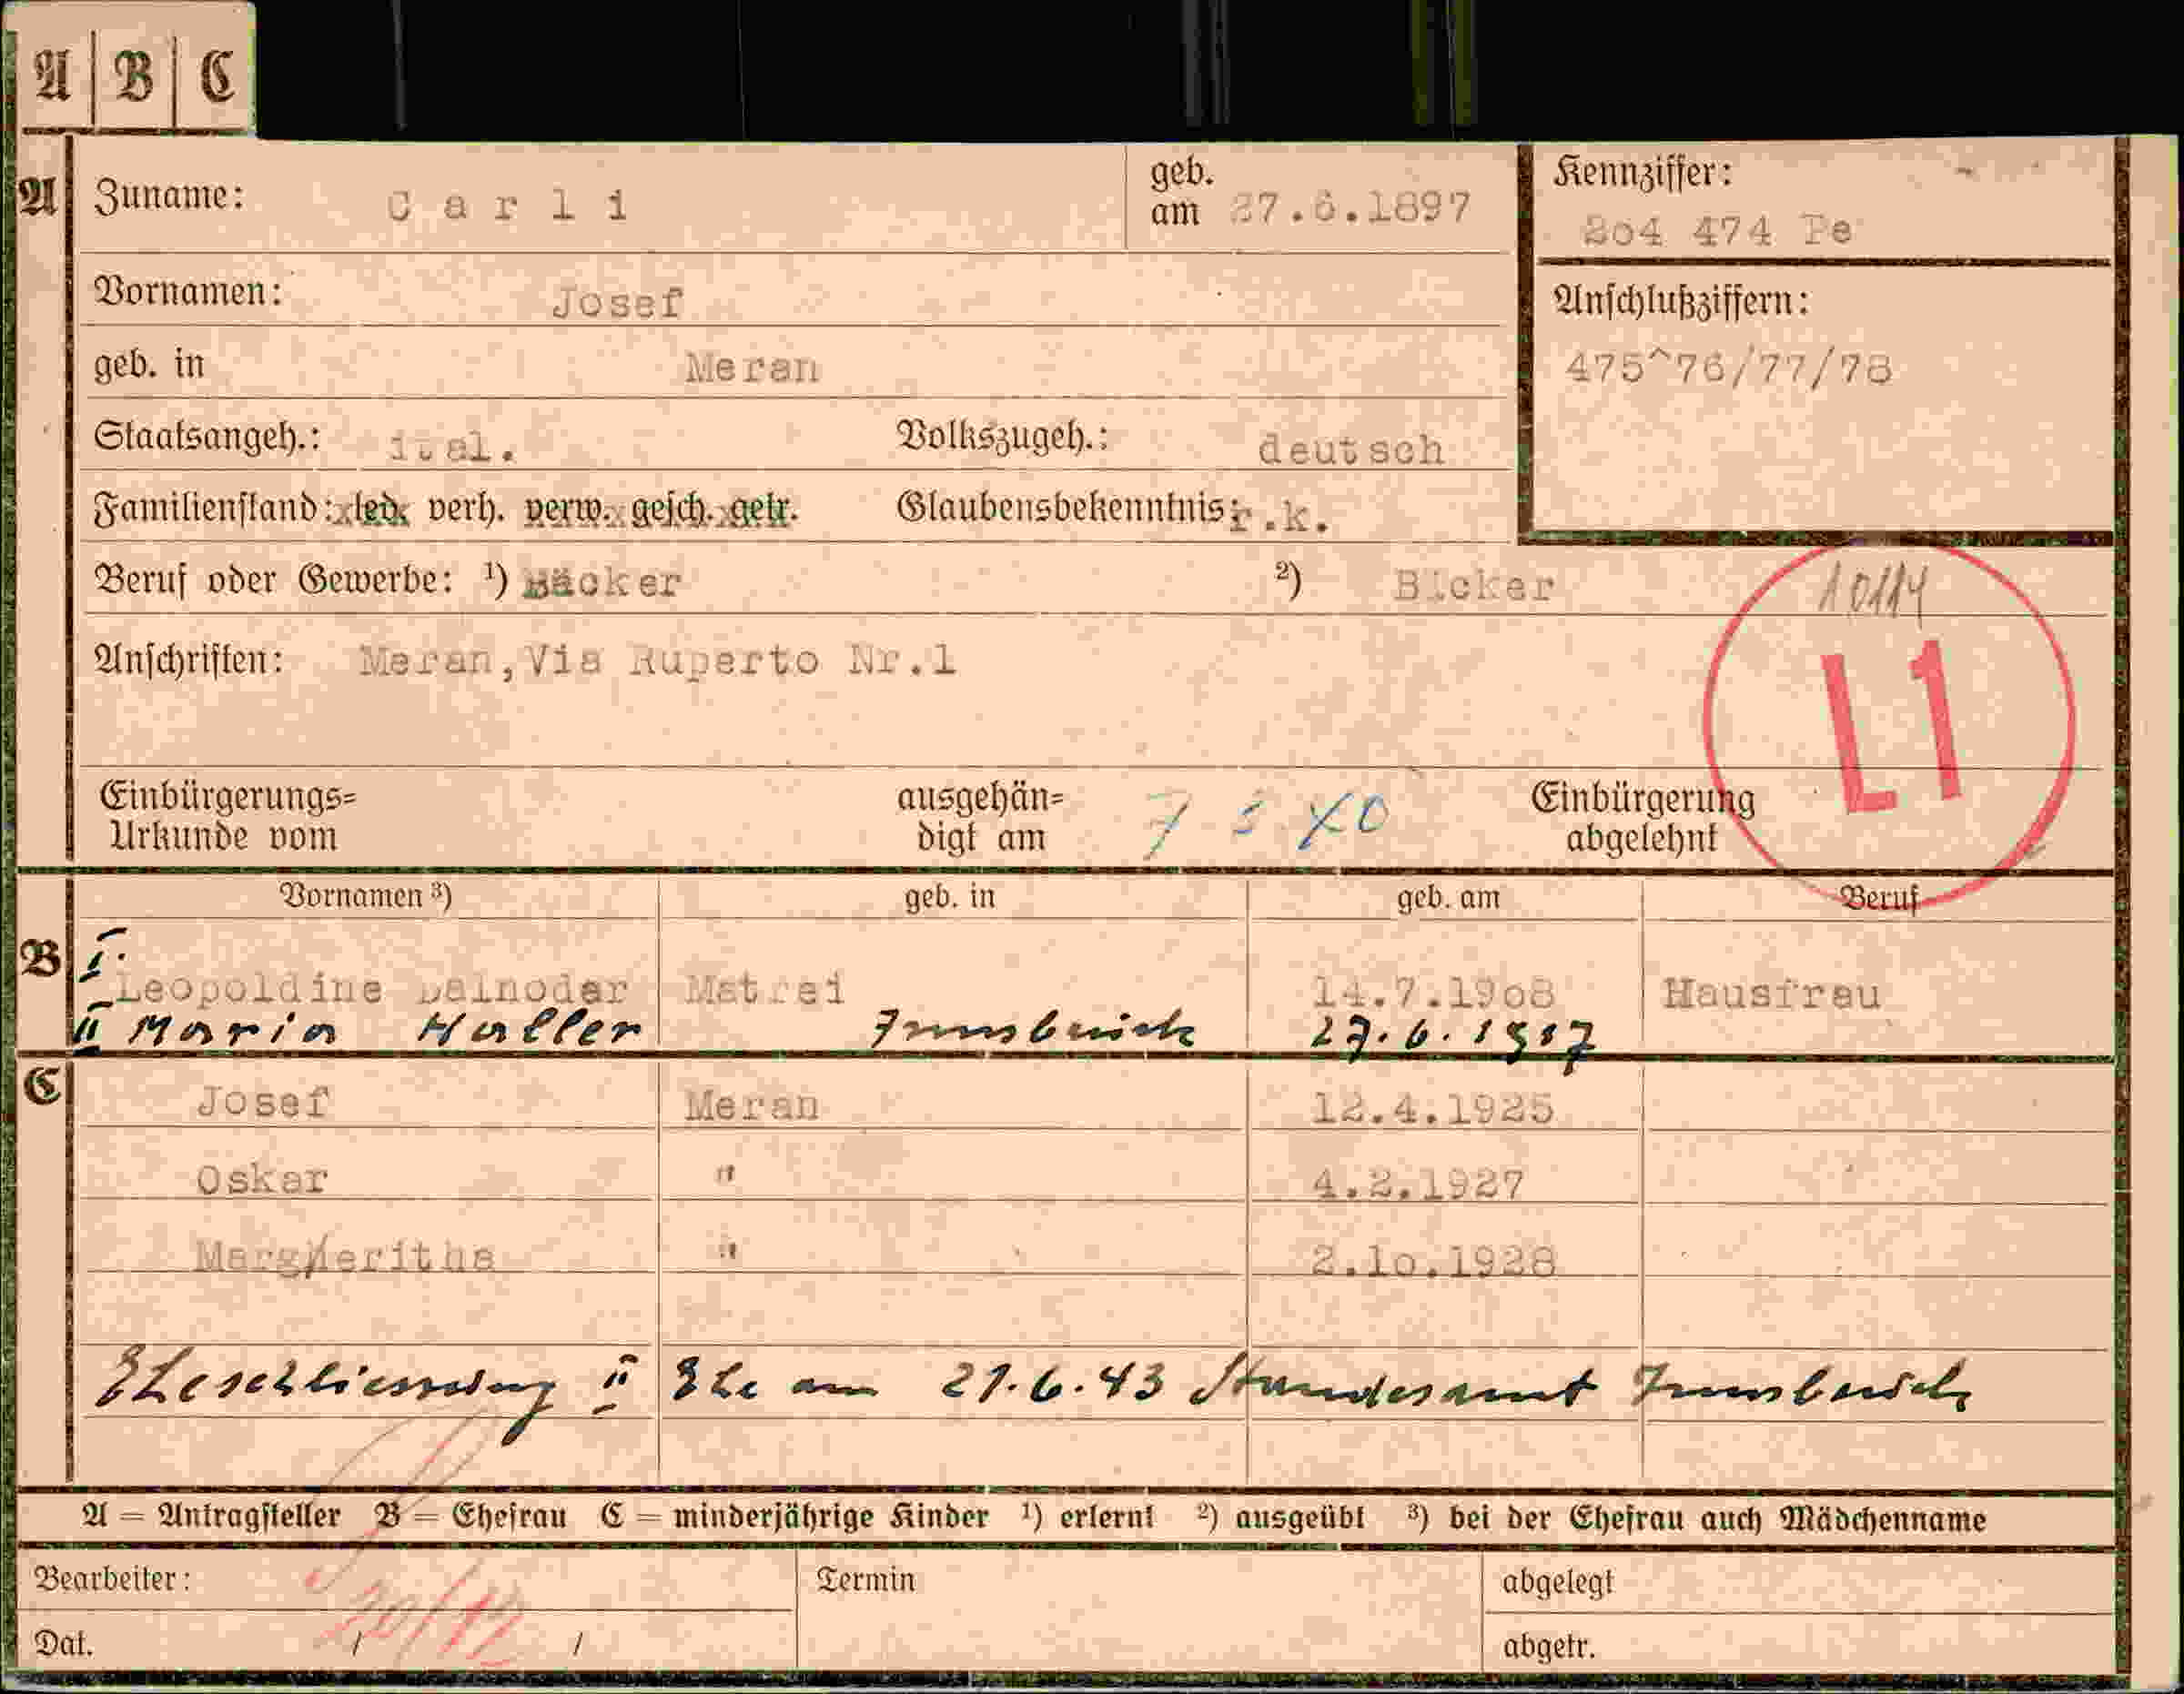 A | B | C
A Zuname: Carli geb. am 27.6.1897
Kennziffer:
204 474 Pe
Vornamen: Josef
Anschlußziffern:
475^76/77/78
geb. in Meran
Staatsangeh.: ital. Volkszugeh.: deutsch
Familienstand: led. verh. verw. gesch. getr. Glaubensbekenntnis: r.k.
Beruf oder Gewerbe: ¹) Bäcker ²) Bäcker
10114
Anschriften: Meran,Via Ruperto Nr.1
L1
Einbürgerungs=Urkunde vom ausgehän=digt am 7 5 40 Einbürgerung abgelehnt
Vornamen ³) geb. in geb. am Beruf
B I. Leopoldine Dalnodar Matrei 14.7.1908 Hausfrau
II Maria Haller Innsbruck 27.6.1917
C Josef Meran 12.4.1925
Oskar " 4.2.1927
Margheritha " 2.10.1928
Eheschliessung II Ehe am 21.6.43 Standesamt Innsbruck
A = Antragsteller B = Ehefrau C = minderjährige Kinder ¹) erlernt ²) ausgeübt ³) bei der Ehefrau auch Mädchenname
Bearbeiter: Termin abgelegt
Dat. / / abgetr.